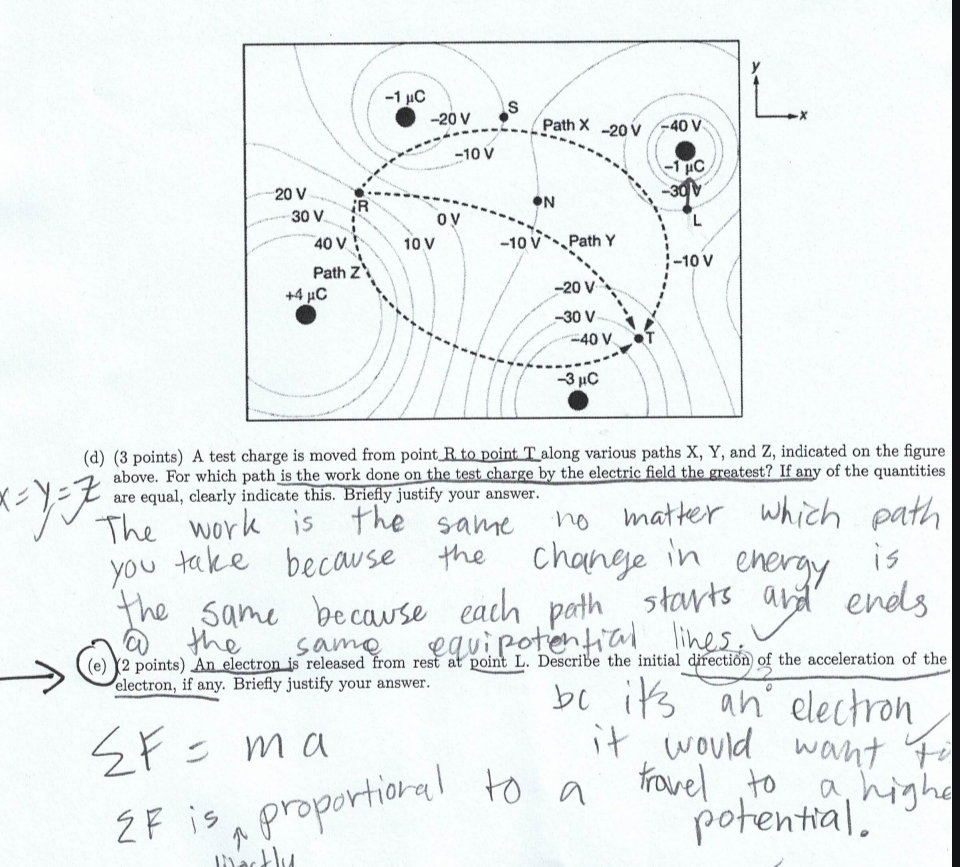 y
x
-1 µC
-20 V
S
Path X
-20 V
-40 V
-10 V
-1 µC
-30 V
20 V
R
N
L
30 V
0 V
40 V
10 V
-10 V
Path Y
-10 V
Path Z
-20 V
+4 µC
-30 V
-40 V
T
-3 µC
(d) (3 points) A test charge is moved from point R to point T along various paths X, Y, and Z, indicated on the figure
above. For which path is the work done on the test charge by the electric field the greatest? If any of the quantities
are equal, clearly indicate this. Briefly justify your answer.
X=Y=Z
The work is the same no matter which path
you take because the change in energy is
the same because each path starts and ends
@ the same equipotential lines.
(e) (2 points) An electron is released from rest at point L. Describe the initial direction of the acceleration of the
electron, if any. Briefly justify your answer.
?
bc it's an electron
it would want to
travel to a highe
potential.
ΣF = ma
ΣF is proportional to a
directly